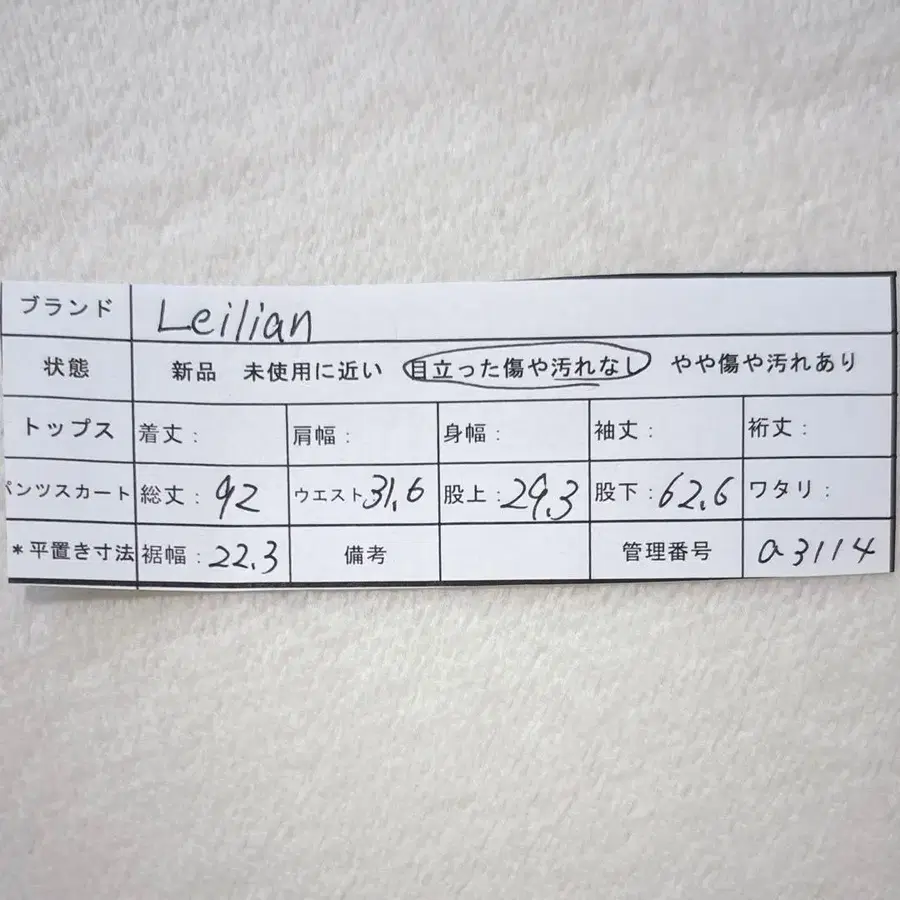 ブランド Leilian
状態 新品 未使用に近い 目立った傷や汚れなし やや傷や汚れあり
トップス 着丈： 肩幅： 身幅： 袖丈： 裄丈：
パンツスカート 総丈：92 ウエスト31.6 股上：29.3 股下：62.6 ワタリ：
*平置き寸法 裾幅：22.3 備考 管理番号 a3114